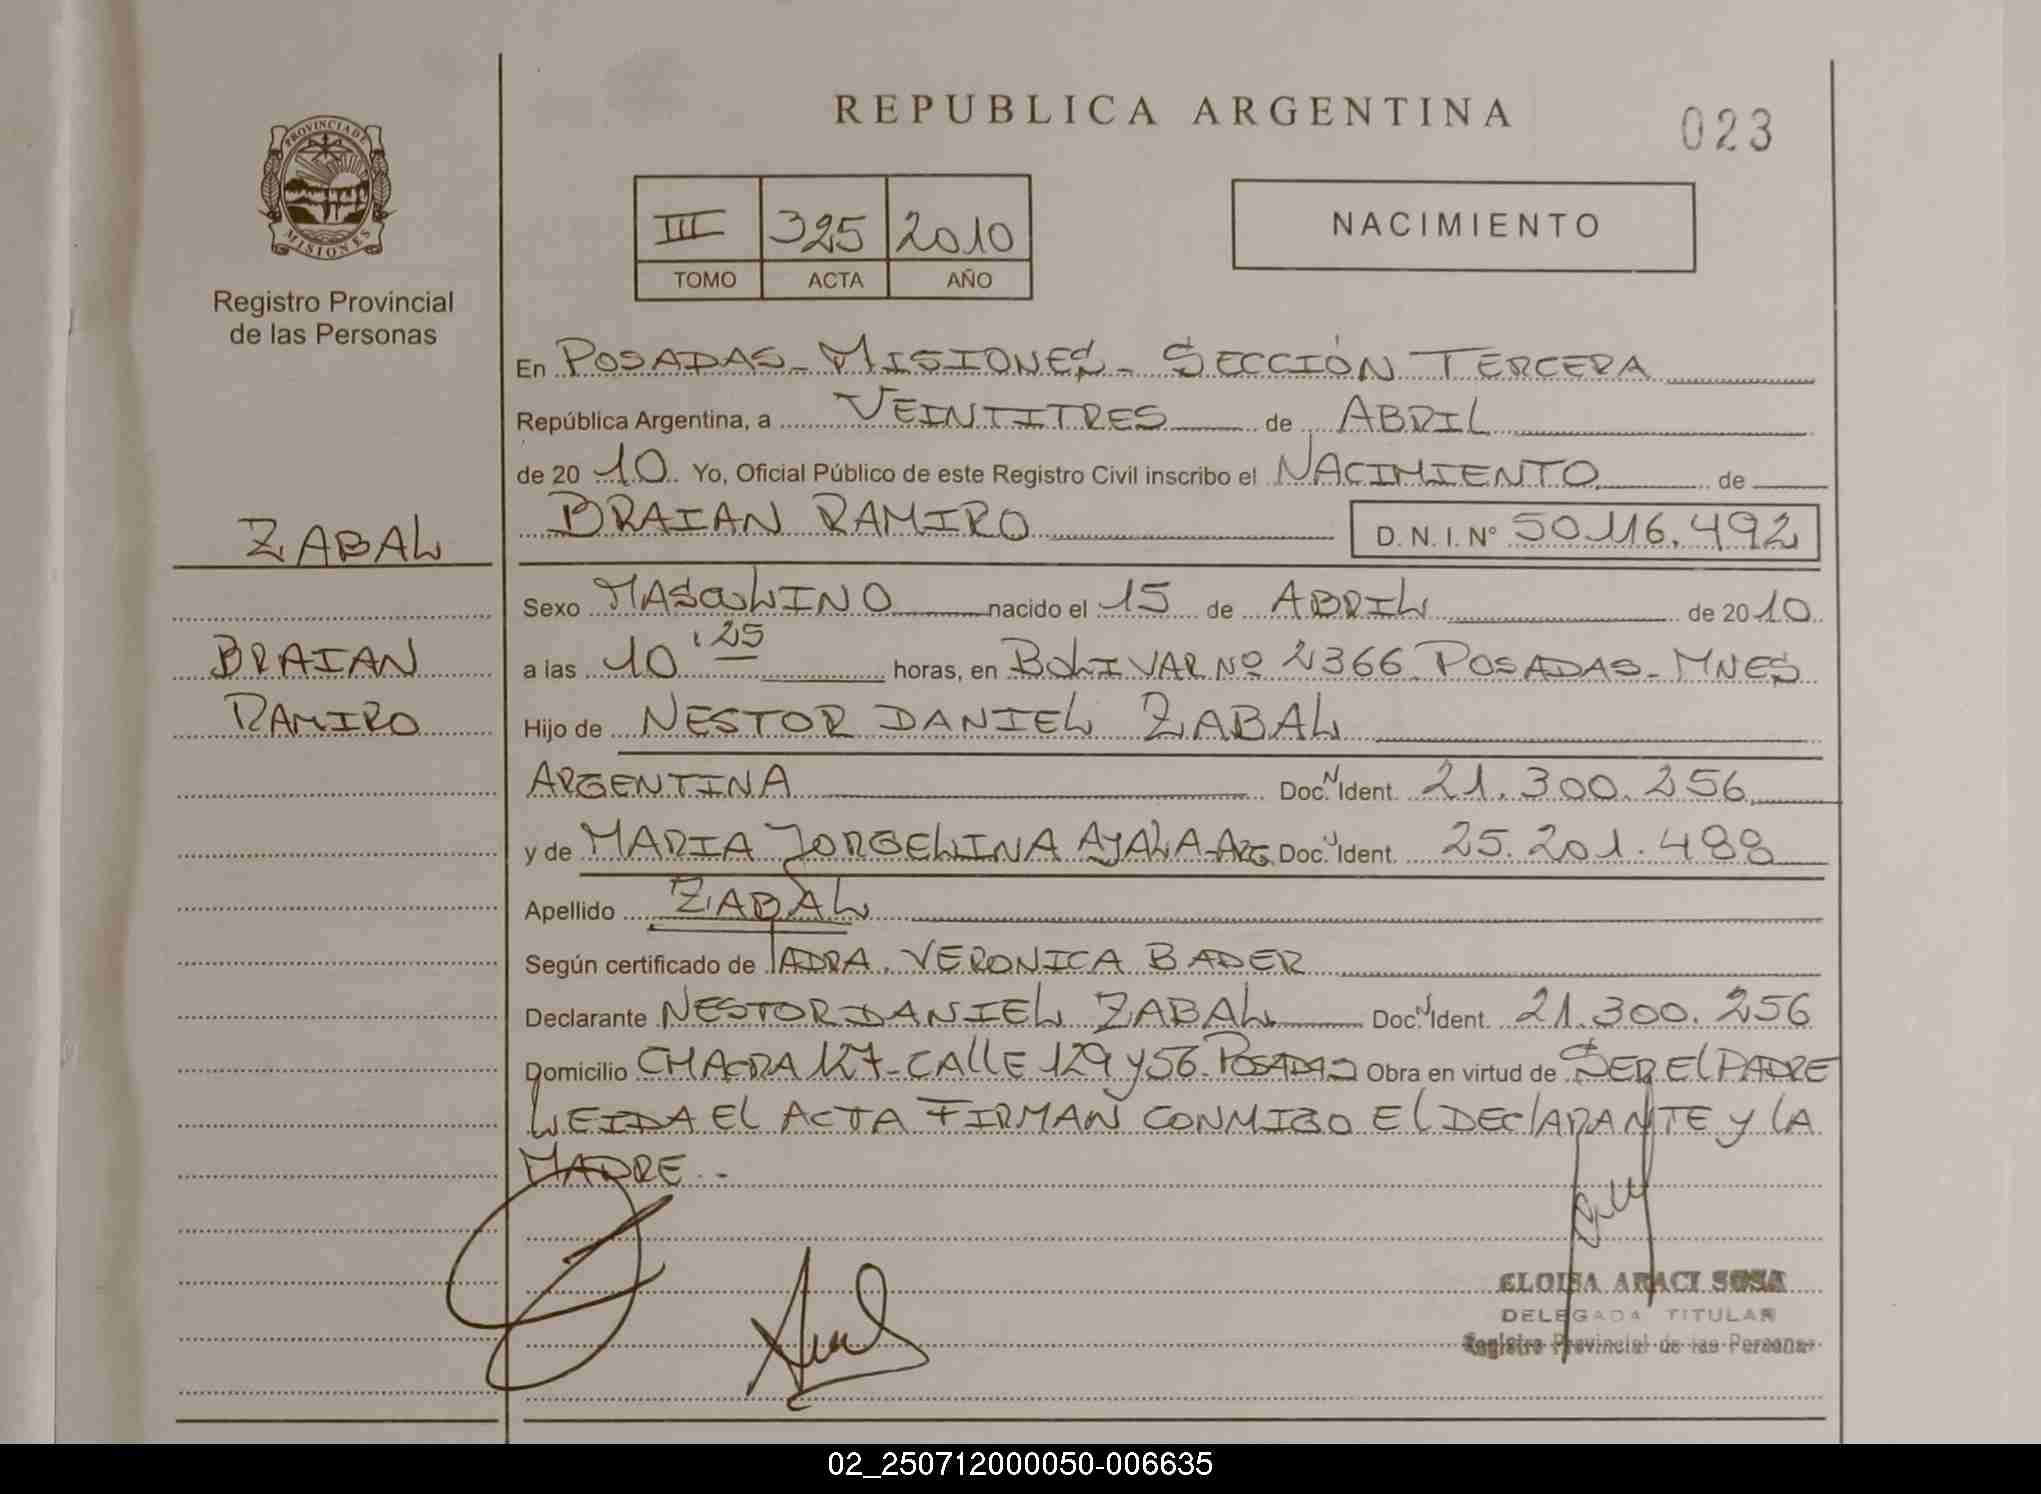 REPUBLICA ARGENTINA
023
PROVINCIA DE
MISIONES
Registro Provincial
de las Personas
III 325 2010
TOMO ACTA AÑO
NACIMIENTO
En POSADAS - MISIONES - SECCIÓN TERCERA
República Argentina, a VEINTITRES de ABRIL
de 2010 Yo, Oficial Público de este Registro Civil inscribo el NACIMIENTO de
BRAIAN RAMIRO D.N.I. Nº 50.116.492
ZABAL
Sexo MASCULINO nacido el 15 de ABRIL de 2010
BRAIAN
a las 10:25 horas, en BOLIVAR Nº 2366 POSADAS - MNES
RAMIRO
Hijo de NESTOR DANIEL ZABAL
ARGENTINA Doc. N Ident. 21.300.256
y de MARIA JORGELINA AYALA - ARG Doc. N Ident. 25.201.488
Apellido ZABAL
Según certificado de DRA. VERONICA BADER
Declarante NESTOR DANIEL ZABAL Doc. N Ident. 21.300.256
Domicilio CHACRA 127 - CALLE 129 y 56 POSADAS Obra en virtud de SER EL PADRE
LEIDA EL ACTA FIRMAN CONMIGO EL DECLARANTE Y LA
MADRE. -
ELOISA ARACI SOSA
DELEGADA TITULAR
Registro Provincial de las Personas
02_250712000050-006635